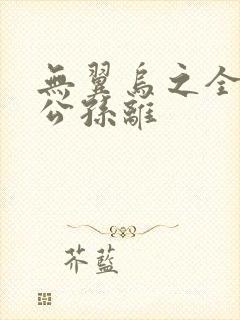 無翼烏之全
公孫離
芥藍